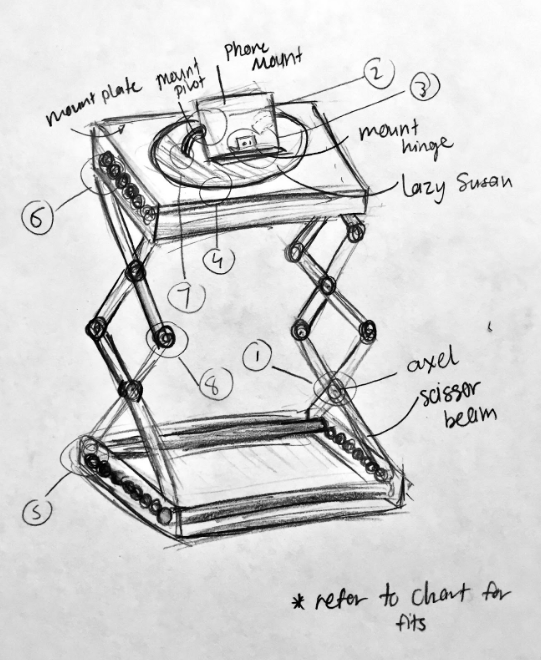 phone
mount
mount
pivot
mount plate
2
3
mount
hinge
lazy Susan
6
4
7
8
1
axel
scissor
beam
5
* refer to chart for
fits